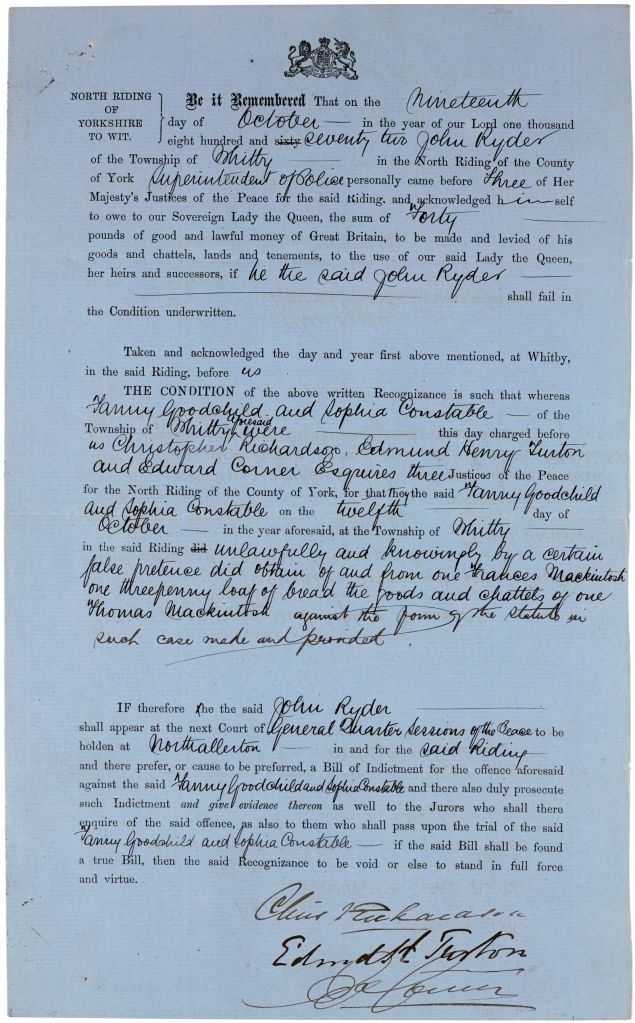 NORTH RIDING
OF
YORKSHIRE
TO WIT.
Be it Remembered That on the Nineteenth
day of October in the year of our Lord one thousand
eight hundred and sixty seventy two John Ryder
of the Township of Whitby in the North Riding of the County
of York Superintendent of Police personally came before Three of Her
Majesty's Justices of the Peace for the said Riding, and acknowledged himself
to owe to our Sovereign Lady the Queen, the sum of Forty
pounds of good and lawful money of Great Britain, to be made and levied of his
goods and chattels, lands and tenements, to the use of our said Lady the Queen,
her heirs and successors, if he the said John Ryder
shall fail in
the Condition underwritten.
Taken and acknowledged the day and year first above mentioned, at Whitby,
in the said Riding, before us
THE CONDITION of the above written Recognizance is such that whereas
Fanny Goodchild and Sophia Constable of the
Township of Whitby aforesaid were this day charged before
us Christopher Richardson, Edmund Henry Turton
and Edward Corner Esquires three Justices of the Peace
for the North Riding of the County of York, for that they the said Fanny Goodchild
and Sophia Constable on the twelfth day of
October in the year aforesaid, at the Township of Whitby
in the said Riding did unlawfully and knowingly by a certain
false pretence did obtain of and from one Frances Mackintosh
one threepenny loaf of bread the goods and chattels of one
Thomas Mackintosh against the form of the statute in
such case made and provided
IF therefore he the said John Ryder
shall appear at the next Court of General Quarter Sessions of the Peace to be
holden at Northallerton in and for the said Riding
and there prefer, or cause to be preferred, a Bill of Indictment for the offence aforesaid
against the said Fanny Goodchild and Sophia Constable and there also duly prosecute
such Indictment and give evidence thereon as well to the Jurors who shall there
enquire of the said offence, as also to them who shall pass upon the trial of the said
Fanny Goodchild and Sophia Constable if the said Bill shall be found
a true Bill, then the said Recognizance to be void or else to stand in full force
and virtue.
Chris Richardson
Edmd H Turton
Ed Corner